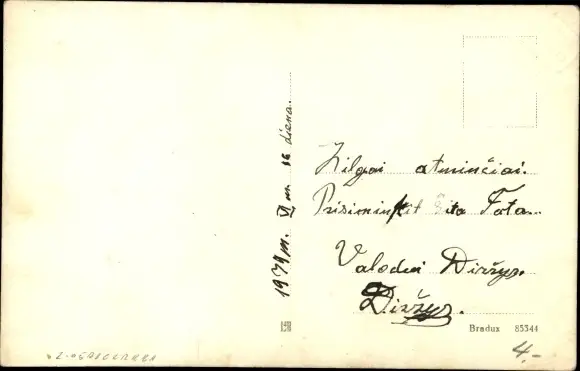 1974 m. VI m. 16 diena.
Žilgai atminčiai.
Prisiminkit šita Foto..
Valodei Diržys.
Diržys.
Bradux 85344
4.-